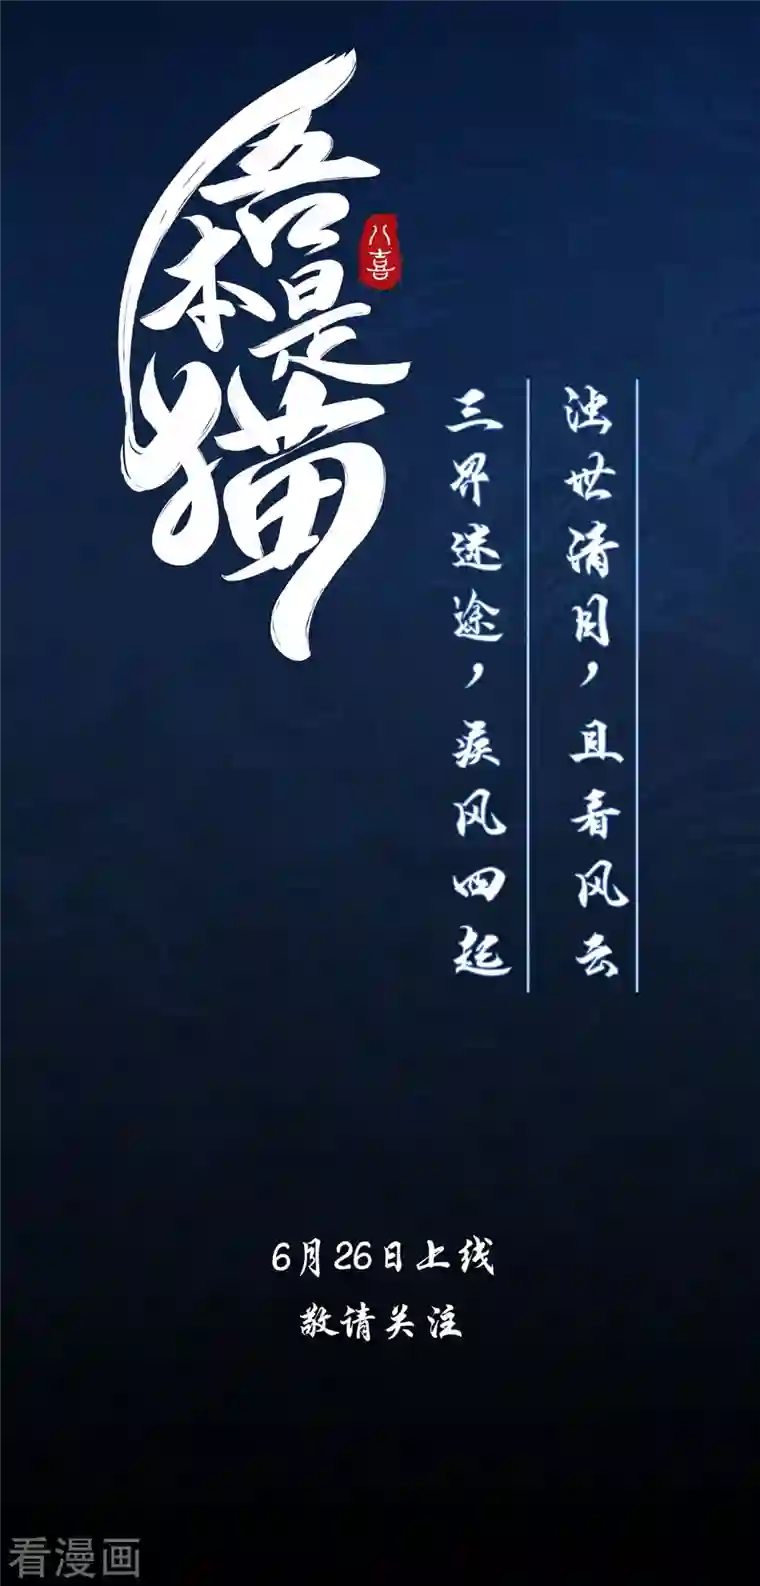 吾本是猫
八喜
浊世清目，且看风云
三界迷途，疾风四起
6月26日上线
敬请关注
看漫画